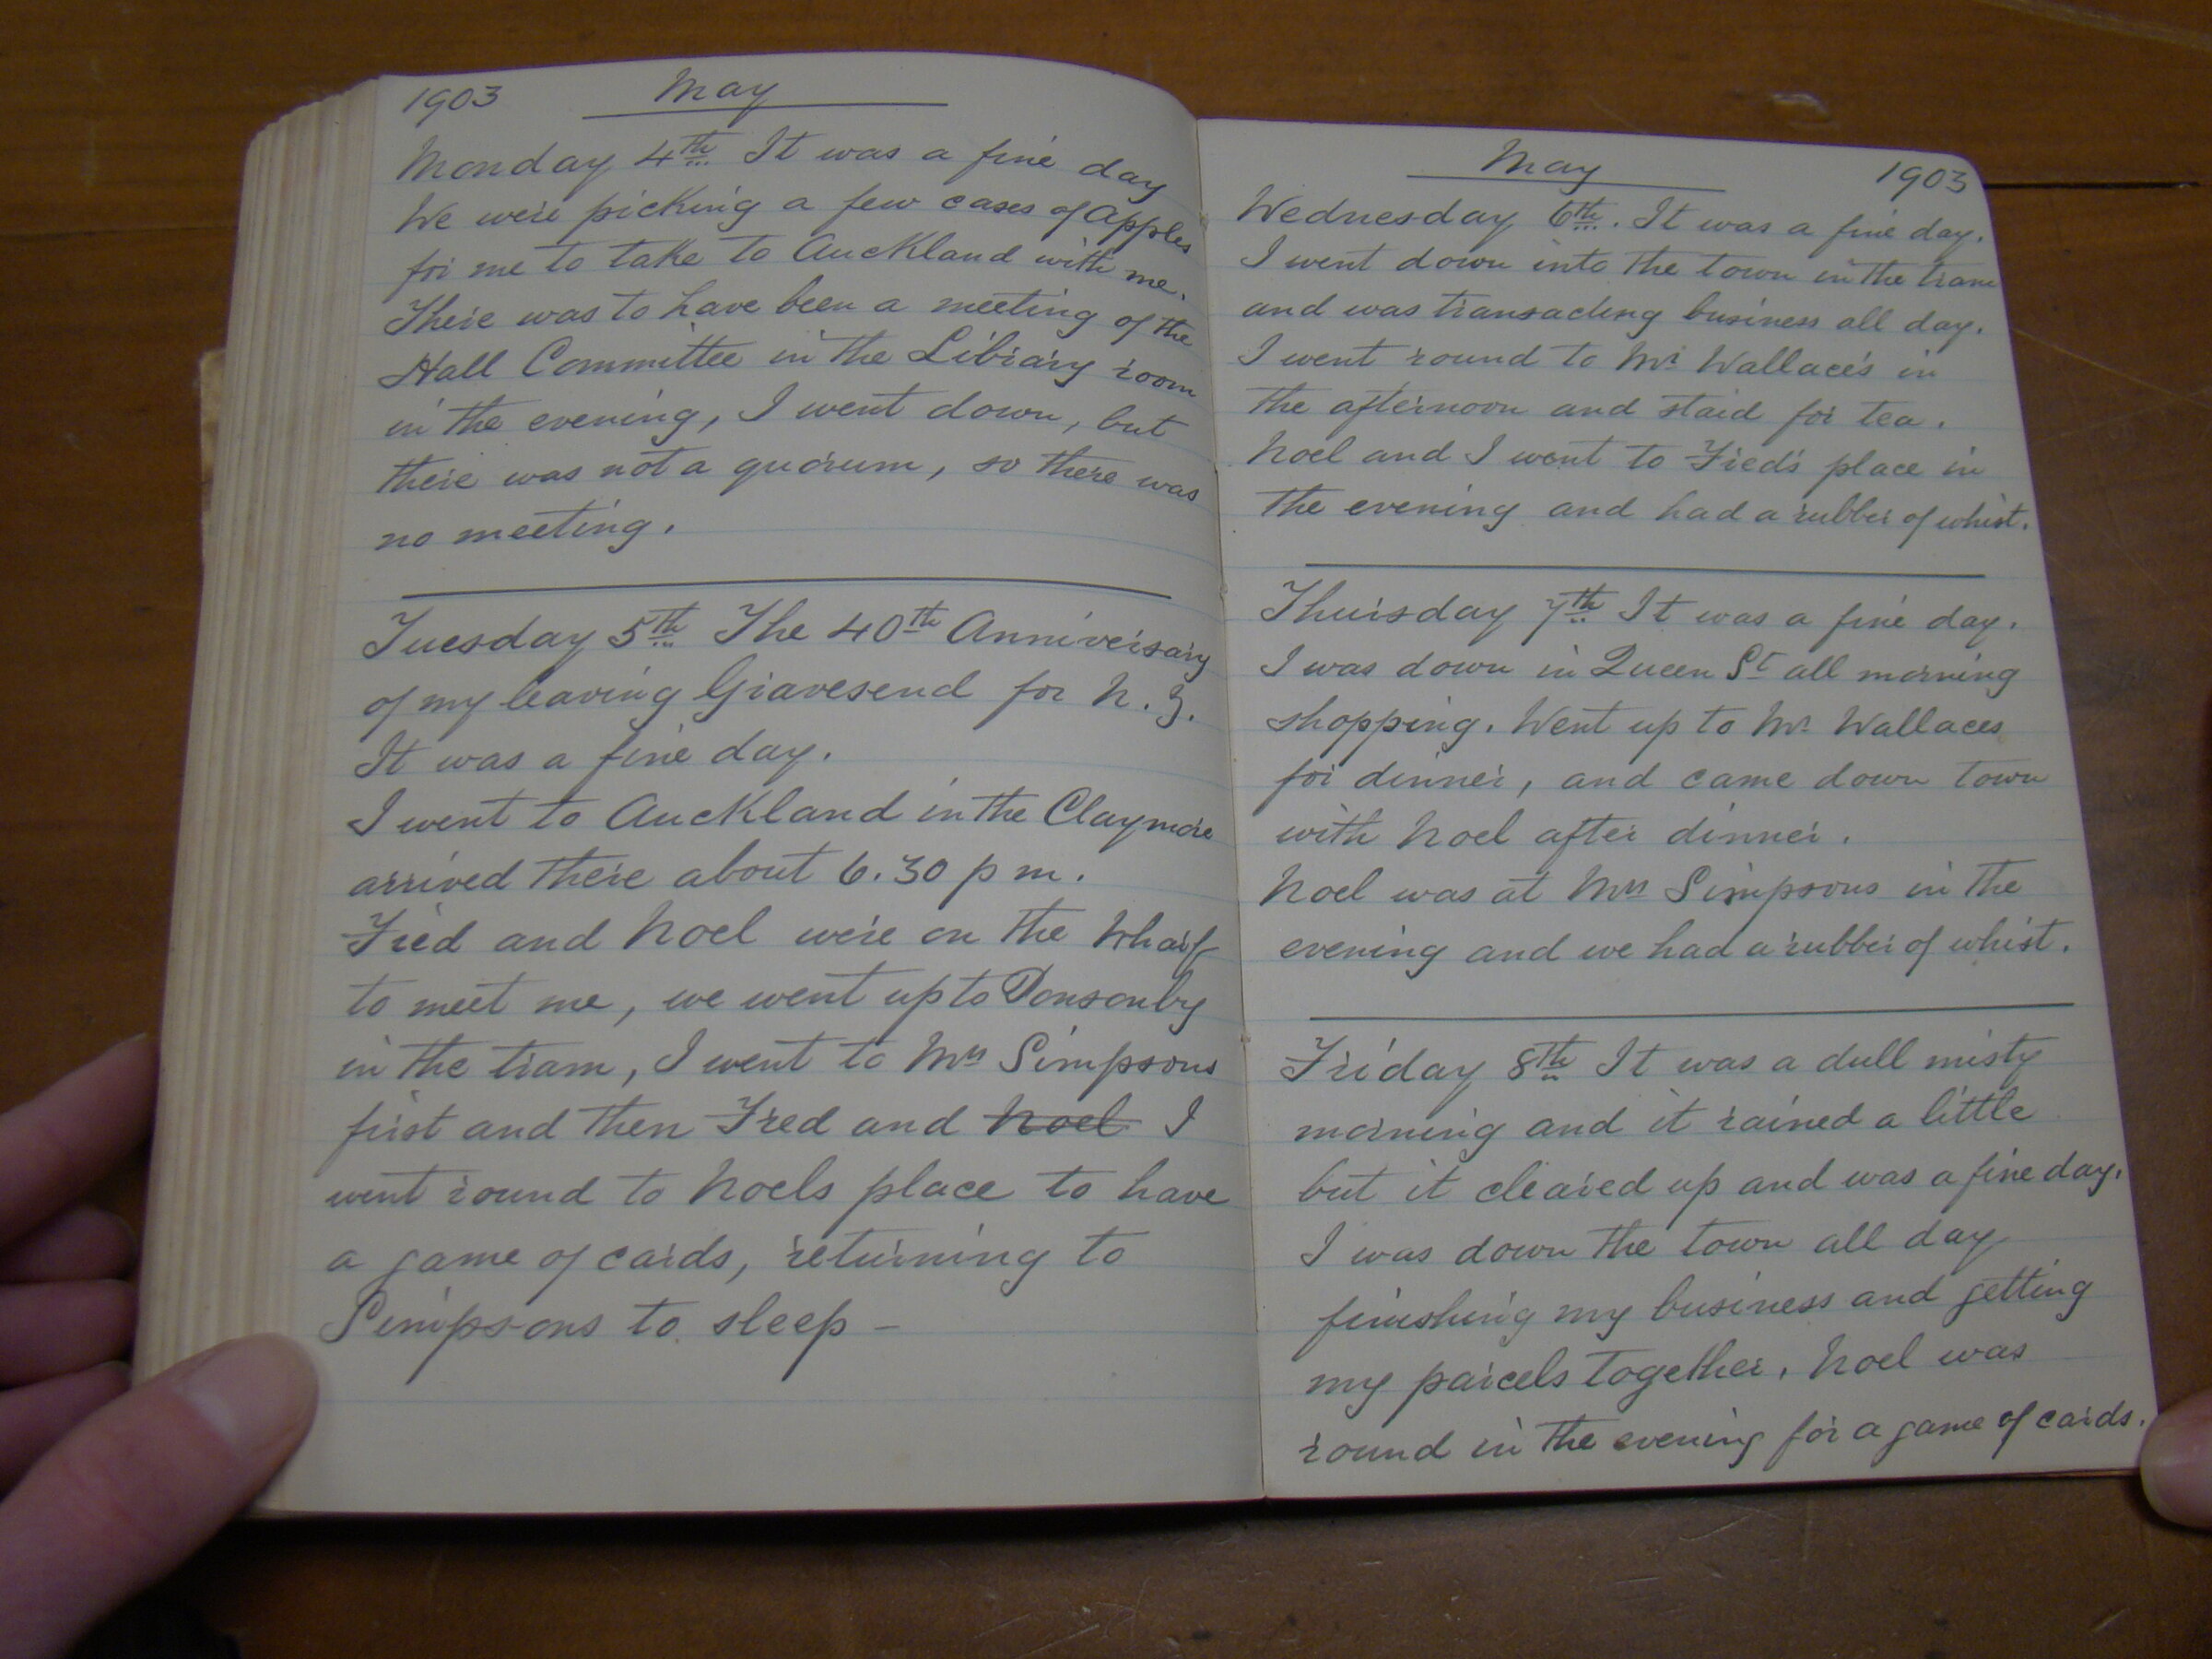 1903 May
Monday 4th It was a fine day
We were picking a few cases of Apples
for me to take to Auckland with me.
There was to have been a meeting of the
Hall Committee in the Library room
in the evening, I went down, but
there was not a quorum, so there was
no meeting.
Tuesday 5th The 40th Anniversary
of my leaving Gravesend for N. Z.
It was a fine day.
I went to Auckland in the Claymore
arrived there about 6.30 p m.
Fred and Noel were on the Wharf
to meet me, we went up to Ponsonby
in the tram, I went to Mrs Simpsons
first and then Fred and Noel I
went round to Noels place to have
a game of cards, returning to
Simpsons to sleep –
May 1903
Wednesday 6th. It was a fine day.
I went down into the town in the tram
and was transacting business all day.
I went round to Mr Wallace's in
the afternoon and staid for tea.
Noel and I went to Fred's place in
the evening and had a rubber of whist.
Thursday 7th It was a fine day.
I was down in Queen St all morning
shopping. Went up to Mr Wallaces
for dinner, and came down town
with Noel after dinner.
Noel was at Mrs Simpsons in the
evening and we had a rubber of whist.
Friday 8th It was a dull misty
morning and it rained a little
but it cleared up and was a fine day.
I was down the town all day
finishing my business and getting
my parcels together. Noel was
round in the evening for a game of cards.